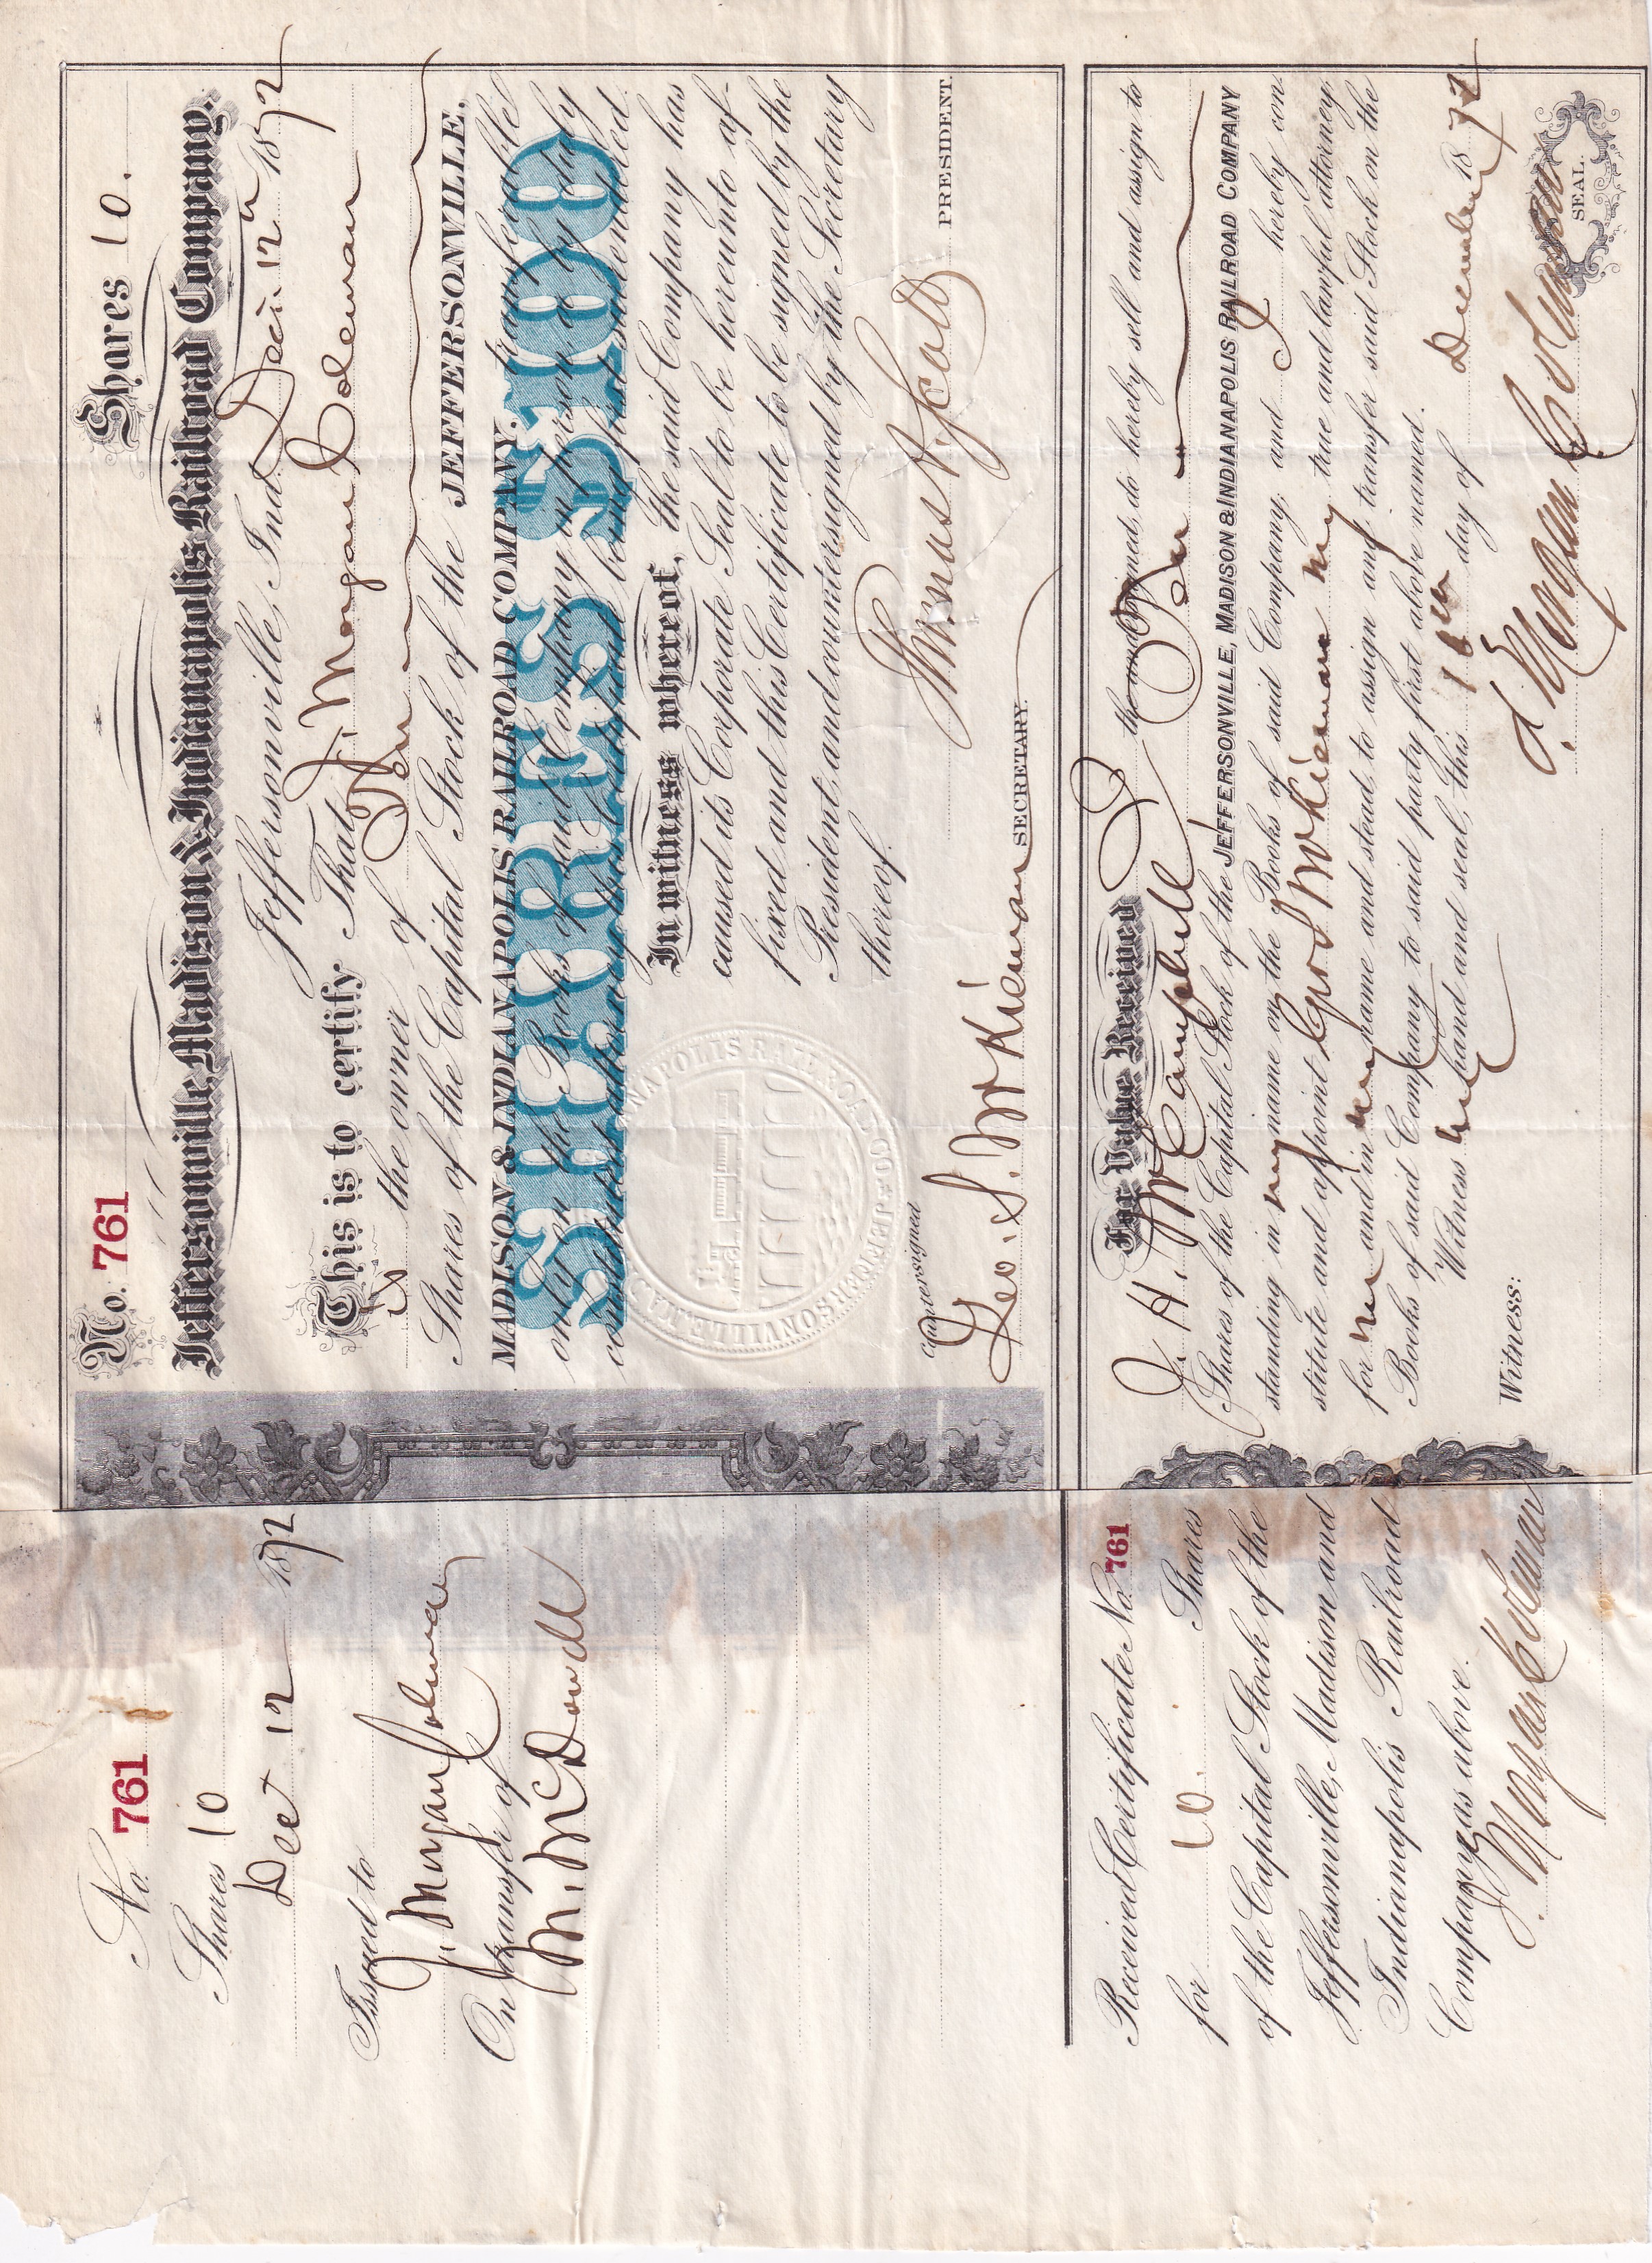 No. 761
Shares 10.
Jeffersonville, Madison & Indianapolis Railroad Company.
Jeffersonville, Ind. Dec. 12th 1872
This is to certify, That J. Morgan Coleman
is the owner of Ten
Shares of the Capital Stock of the JEFFERSONVILLE,
MADISON & INDIANAPOLIS RAILROAD COMPANY,
only on the Books of said Company in person or by duly
SHARES $100
In witness whereof, the said Company has
caused its Corporate Seal to be hereunto af-
fixed and this Certificate to be signed by the
President, and countersigned by the Secretary
thereof.
Thomas A. Scott PRESIDENT.
Countersigned
Geo. S. McKiernan SECRETARY.
For Value Received I the undersigned, do hereby sell and assign to
J. H. McCampbell Ten
Shares of the Capital Stock of the JEFFERSONVILLE, MADISON & INDIANAPOLIS RAILROAD COMPANY
standing in my name on the Books of said Company, and I hereby con-
stitute and appoint Geo S McKiernan my true and lawful attorney,
for me and in my name and stead, to assign and transfer said Stock on the
Books of said Company to said party first above named.
Witness my hand and seal, this 16th day of December 1872
J. Morgan Coleman
SEAL.
Witness:
No. 761
Shares 10
Dec 12 1872
Issued to
J. Morgan Coleman
On transfer of
M. McDowell
Received Certificate No. 761
for 10. Shares
of the Capital Stock of the
Jeffersonville, Madison and
Indianapolis Railroad
Company as above.
J. Morgan Coleman